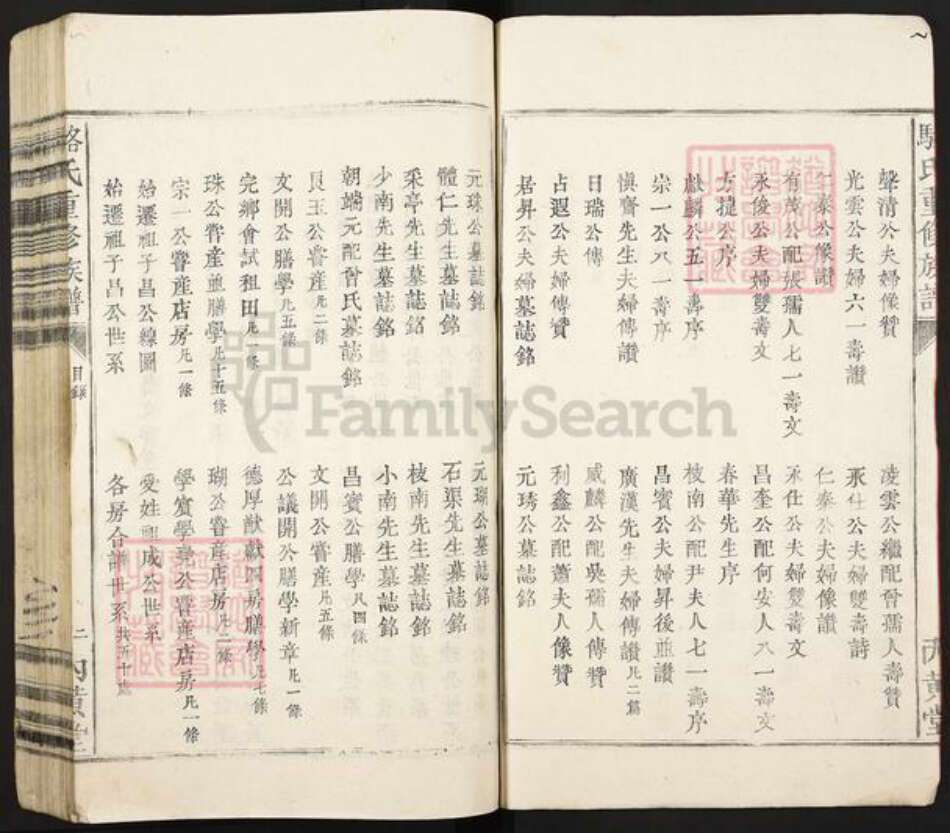 駱氏重修族譜
內黃堂
聲清公夫婦像贊
淩雲公繼配晉孺人壽贊
光雲公夫婦六一壽讚
永仕公夫婦雙壽詩
仁泰公像讚
仁泰公夫婦像讚
有茂公配張孺人七一壽文
永仕公夫婦雙壽文
永後公夫婦雙壽文
昌奎公配何安人八一壽文
方㨗公序
春華先生序
獻麟公五一壽序
枝南公配尹夫人七一壽序
崇一公八一壽序
昌賓公夫婦昇後並讚
慎齋先生夫婦傳讚
廣漢先生夫婦傳讚凡二篇
日瑞公傳
威麟公配吳孺人傳贊
占遐公夫婦傳贊
利鑫公配蕭夫人像贊
居昇公夫婦墓誌銘
元琇公墓誌銘
元珠公墓誌銘
元瑚公墓誌銘
體仁先生墓誌銘
石渠先生墓誌銘
采亭先生墓誌銘
枝南先生墓誌銘
少南先生墓誌銘
小南先生墓誌銘
朝端元配曾氏墓誌銘
昌賓公膳學凡四條
貝玉公嘗產凡二條
文開公嘗產凡五條
文開公膳學凡五條
公議開公膳學新章凡一條
完鄉會試租田凡一條
德厚猷獻四房膳學凡七條
珠公嘗產並膳學凡十五條
瑚公嘗產店房凡二條
宗一公嘗產店房凡一條
學賓學堯公嘗產店房凡一條
始遷祖子昌公線圖
愛姓祖成公世系
始遷祖子昌公世系
各房合譜世系共五十處
駱氏重修族譜
目錄
二
內黃堂
FamilySearch